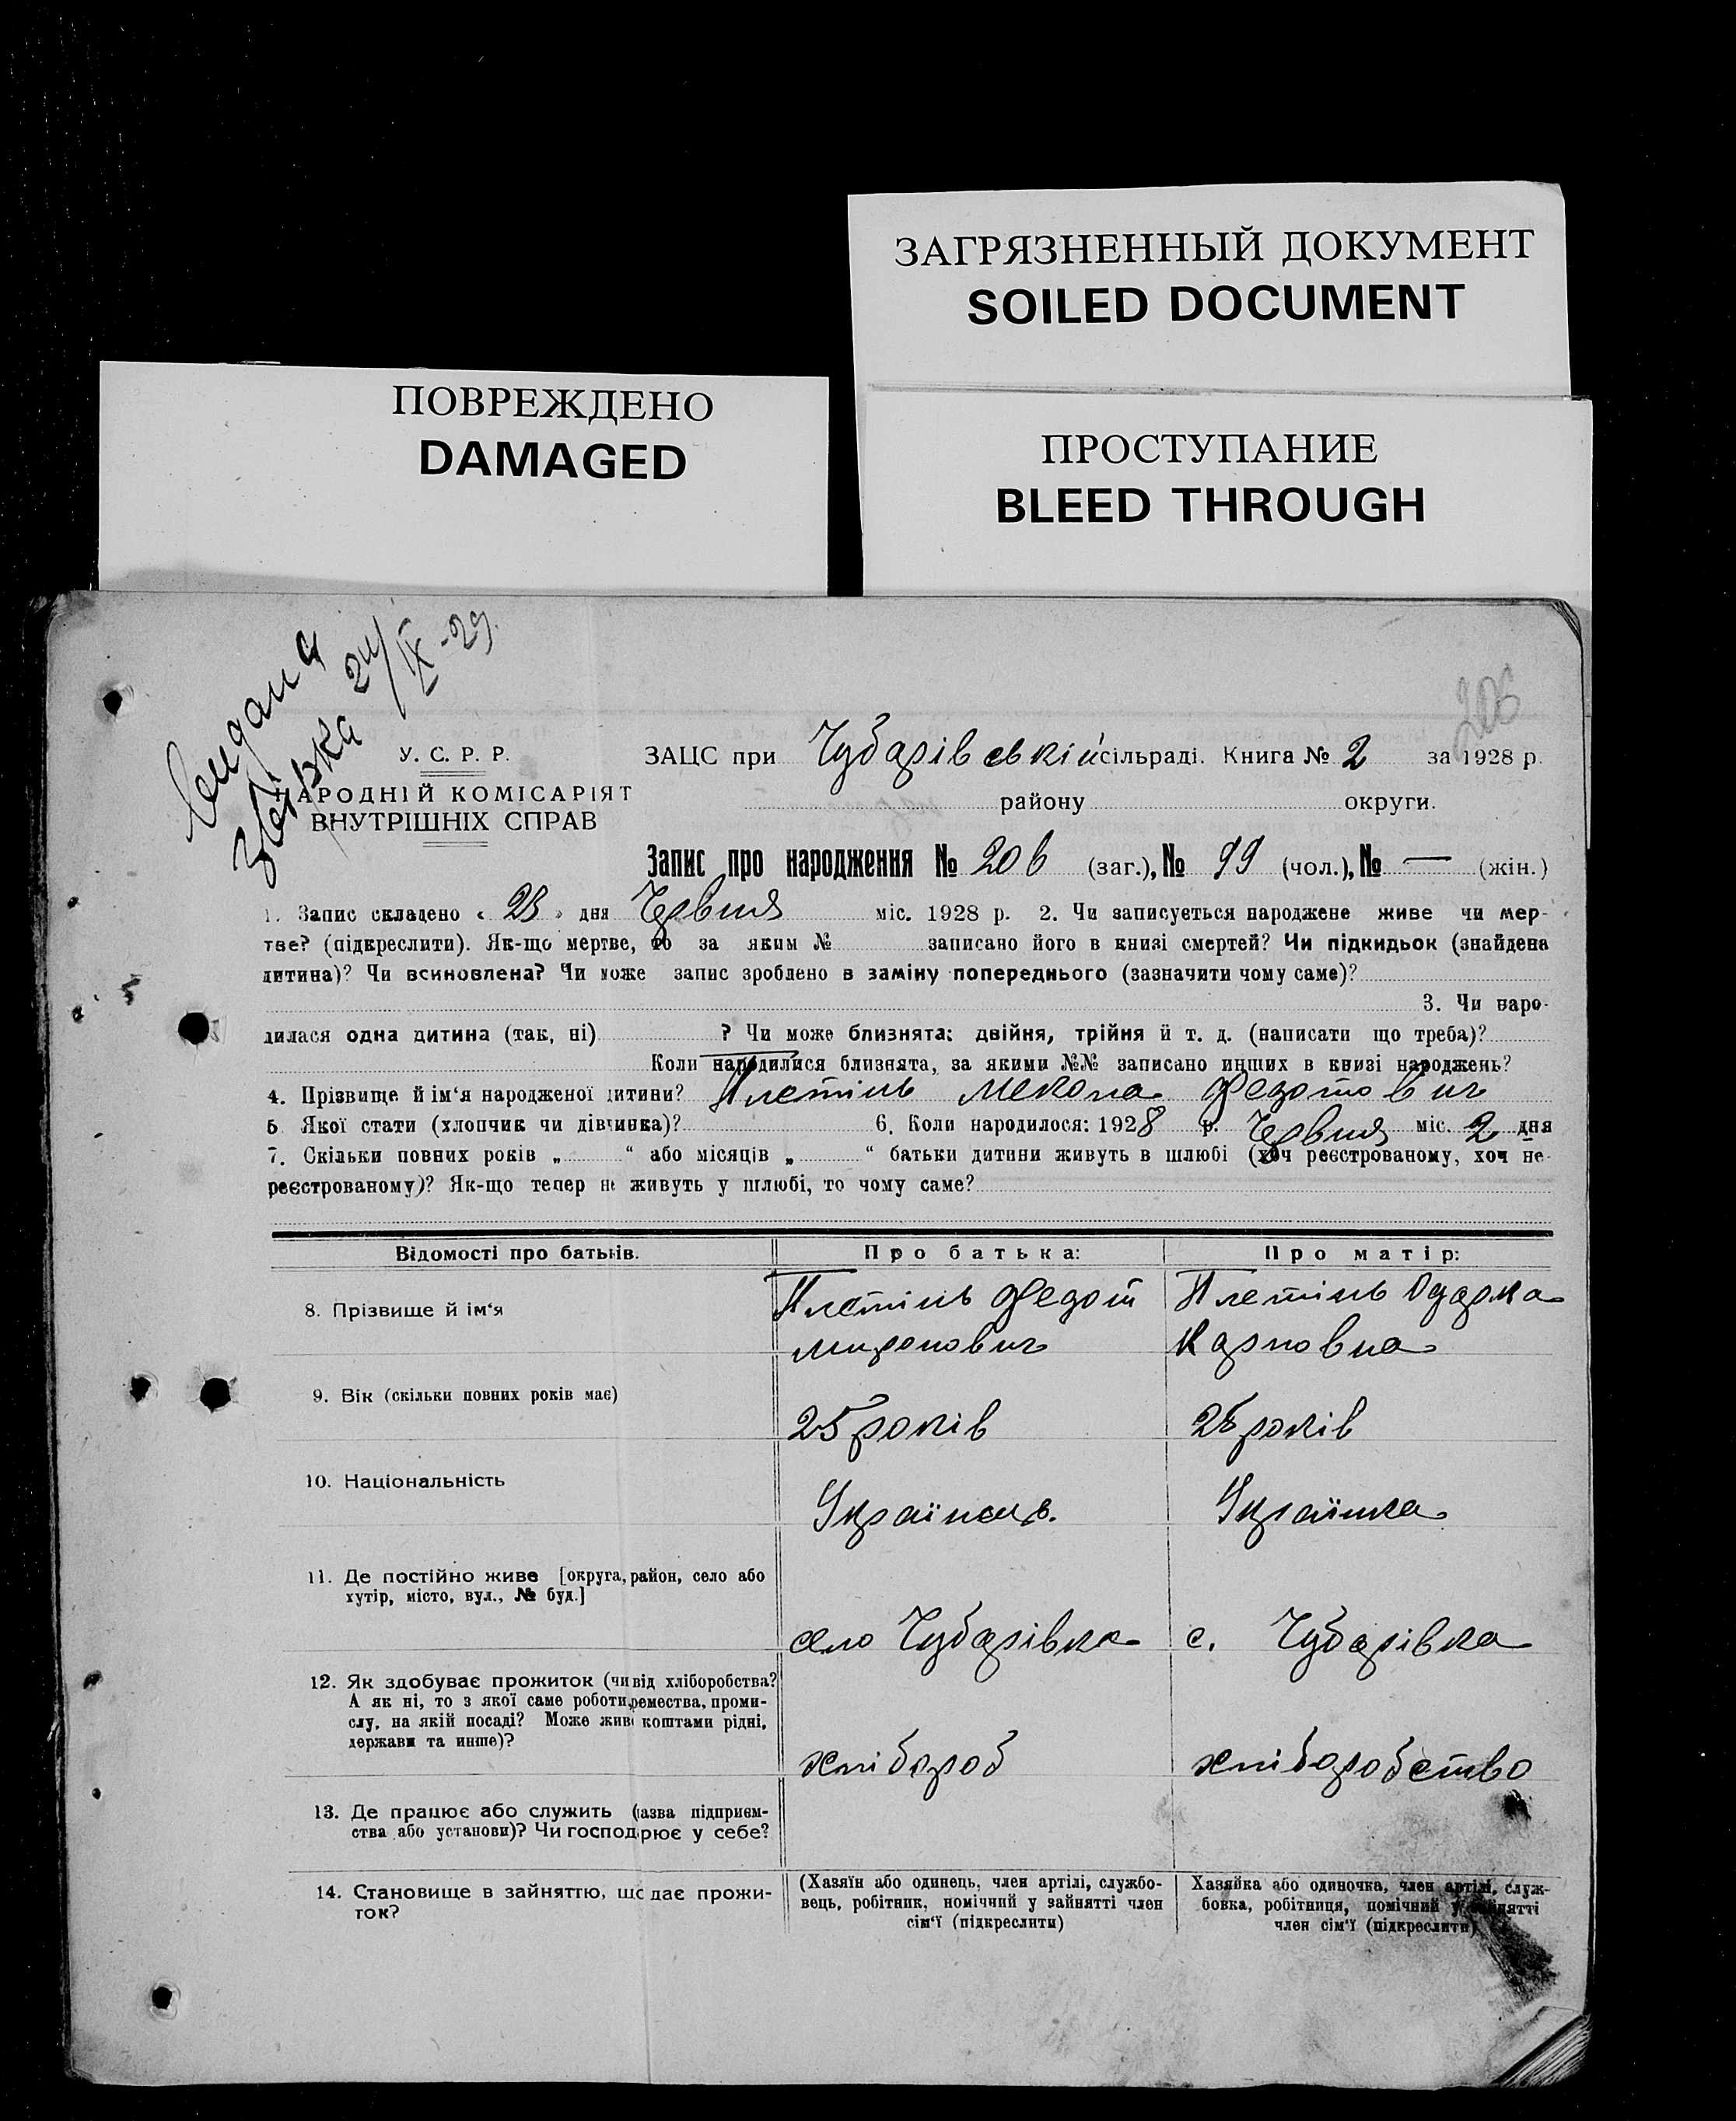 ЗАГРЯЗНЕННЫЙ ДОКУМЕНТ
SOILED DOCUMENT
ПОВРЕЖДЕНО
DAMAGED
ПРОСТУПАНИЕ
BLEED THROUGH
Видана
24/IX-29.
206
У. С. Р. Р.
НАРОДНІЙ КОМІСАРІЯТ
ВНУТРІШНІХ СПРАВ
ЗАЦС при Чубарівській сільраді. Книга № 2 за 1928 р.
району округи.
Запис про народження № 206 (заг.), № 99 (чол.), № — (жін.)
1. Запис складено « 23 » дня Червня міс. 1928 р. 2. Чи записується народжене живе чи мер-
тве? (підкреслити). Як-що мертве, то за яким № записано його в книзі смертей? Чи підкидьок (знайдена
дитина)? Чи всиновлена? Чи може запис зроблено в заміну попереднього (зазначити чому саме)?
3. Чи наро-
дилася одна дитина (так, ні) ? Чи може близнята: двійня, трійня й т. д. (написати що треба)?
Коли народилися близнята, за якими №№ записано инших в книзі народжень?
4. Прізвище й ім'я народженої дитини? Плетінь Федотович
5 Якої стати (хлопчик чи дівчинка)? 6. Коли народилося: 1928 р. Червня міс. 2 дня
7. Скільки повних років „ “ або місяців „ “ батьки дитини живуть в шлюбі (хоч реєстрованому, хоч не-
реєстрованому)? Як-що тепер не живуть у шлюбі, то чому саме?
Відомості про батьків. Про батька: Про матір:
8. Прізвище й ім'я
Плетінь Федот Миронович
Плетінь Одарка Карповна
9. Вік (скільки повних років має)
25 років
26 років
10. Національність
Українець.
Українка
11. Де постійно живе [округа, район, село або
хутір, місто, вул., № буд.]
село Чубарівка
с. Чубарівка
12. Як здобуває прожиток (чи від хліборобства?
А як ні, то з якої саме роботи, ремества, проми-
слу, на якій посаді? Може живе коштами рідні,
держави та инше)?
хлібороб
хліборобство
13. Де працює або служить (назва підприєм-
ства або установи)? Чи господарює у себе?
14. Становище в зайняттю, що дає прожи-
ток?
(Хазяїн або одинець, член артілі, службо-
вець, робітник, помічний у зайнятті член
сім'ї (підкреслити)
Хазяйка або одиночка, член артілі, служ-
бовка, робітниця, помічний у зайнятті
член сім'ї (підкреслити)